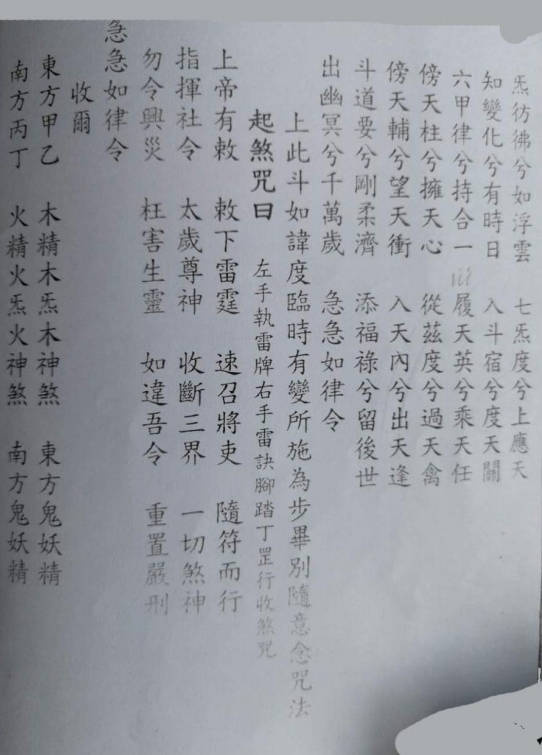 炁彷彿兮如浮雲　七炁度兮上應天
知變化兮有時日　入斗宿兮度天關
六甲律兮持合一　履天英兮乘天任
傍天柱兮擁天心　從茲度兮過天禽
傍天輔兮望天衝　入天內兮出天逢
斗道要兮剛柔濟　添福祿兮留後世
出幽冥兮千萬歲　急急如律令
上此斗如諱度臨時有變所施為步畢別隨意念咒法
起煞咒曰　左手執雷牌右手雷訣腳踏丁罡行收煞咒
上帝有敕　敕下雷霆　速召將吏　隨符而行
指揮社令　太歲尊神　收斷三界　一切煞神
勿令興災　枉害生靈　如違吾令　重置嚴刑
急急如律令
收爾
東方甲乙　木精木炁木神煞　東方鬼妖精
南方丙丁　火精火炁火神煞　南方鬼妖精